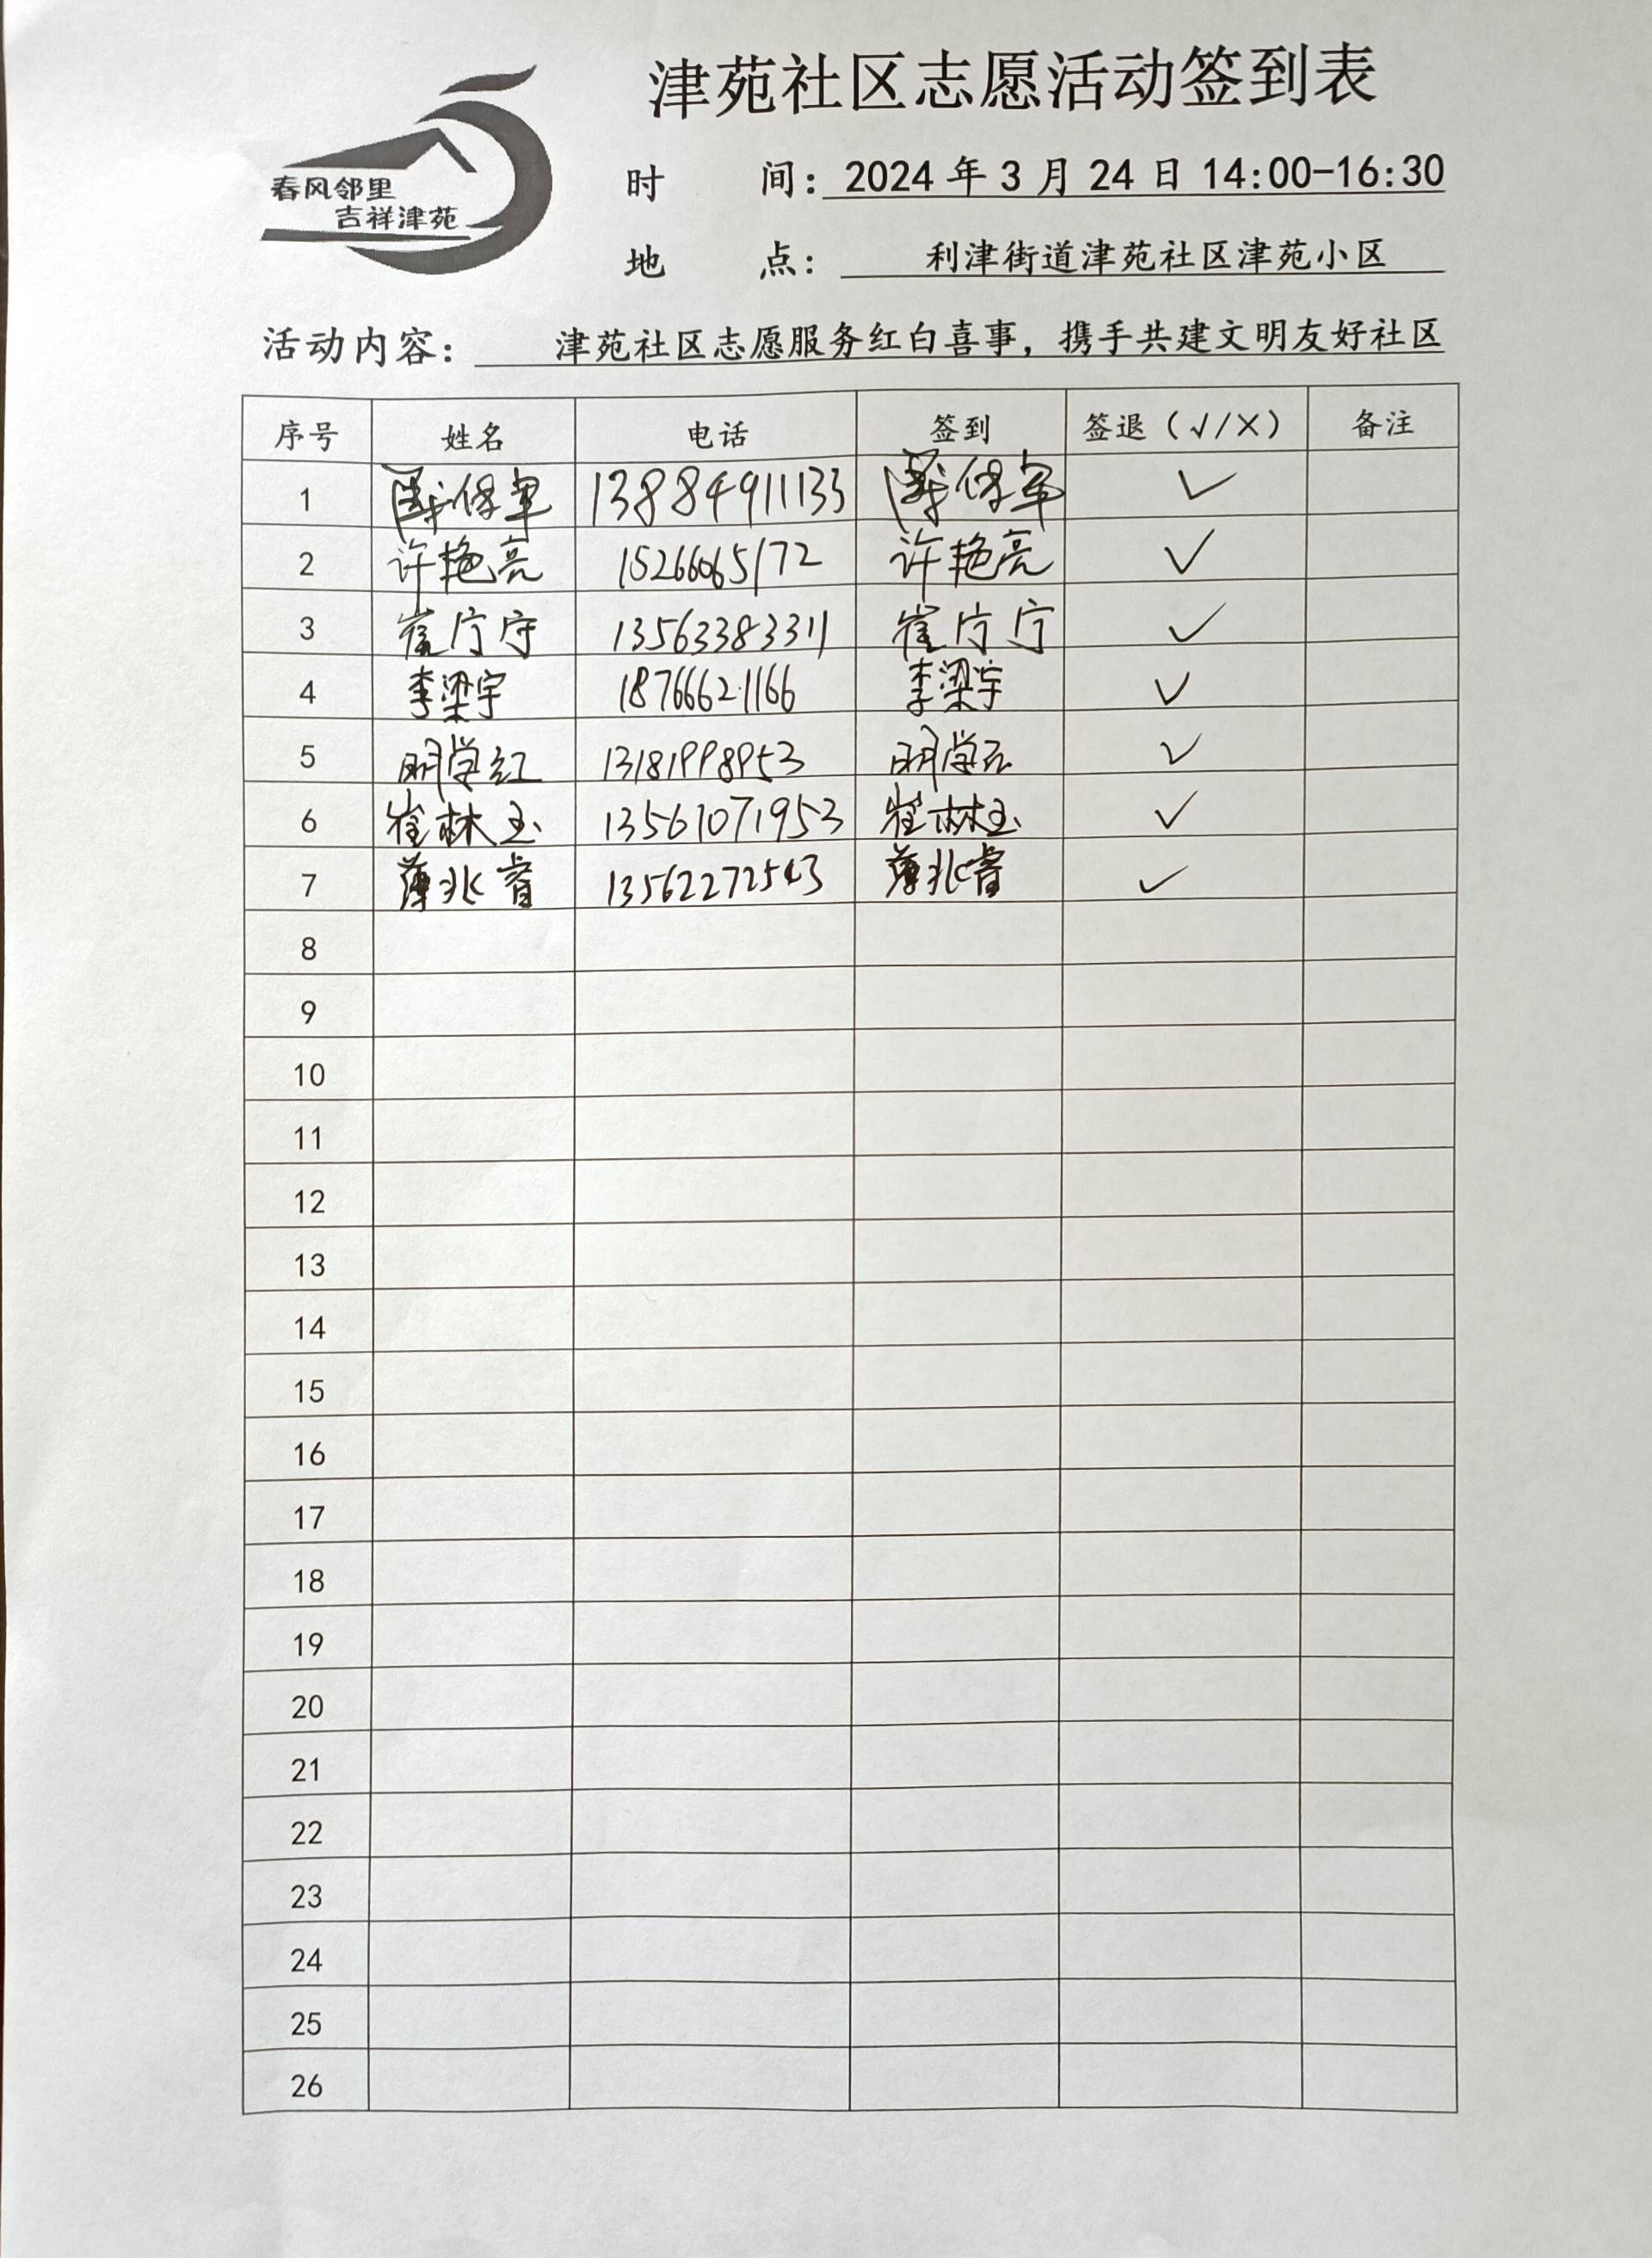 春风邻里
吉祥津苑
津苑社区志愿活动签到表
时 间：2024年3月24日14:00-16:30
地 点：利津街道津苑社区津苑小区
活动内容：津苑社区志愿服务红白喜事，携手共建文明友好社区
序号 姓名 电话 签到 签退（√/×） 备注
1 保军 13884911133 保军 √
2 许艳亮 15266065172 许艳亮 √
3 崔 13563383311 崔 √
4 李梁宇 18766621166 李梁宇 √
5 明学红 13181998953 明学红 √
6 崔林玉 13561071953 崔林玉 √
7 薄兆睿 13562272543 薄兆睿 √
8
9
10
11
12
13
14
15
16
17
18
19
20
21
22
23
24
25
26